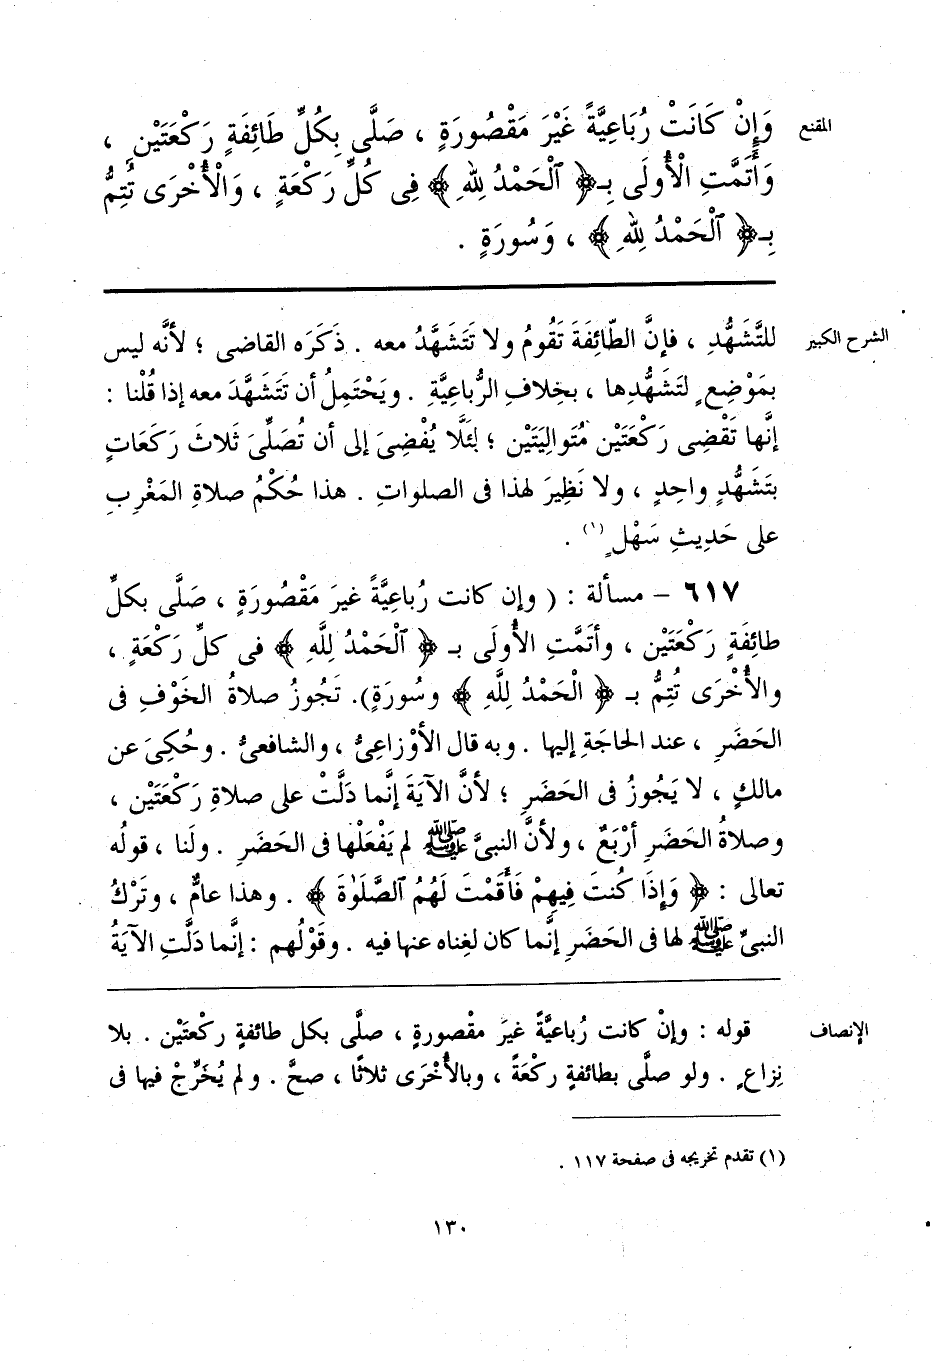 المقنع
وَإِنْ كَانَتْ رُبَاعِيَّةً غَيْرَ مَقْصُورَةٍ ، صَلَّى بِكُلِّ طَائِفَةٍ رَكْعَتَيْنِ ،
وَأَتَمَّتِ الْأُولَى بِـ﴿ ٱلْحَمْدُ لِلهِ ﴾ فِى كُلِّ رَكْعَةٍ ، وَالْأُخْرَى تُتِمُّ
بِـ﴿ ٱلْحَمْدُ لِلهِ ﴾ ، وَسُورَةٍ .
الشرح الكبير
للتَّشَهُّدِ ، فإنَّ الطّائِفَةَ تَقُومُ ولا تَتَشَهَّدُ معه . ذَكَرَه القاضى ؛ لأنَّه ليس
بمَوْضِعٍ لتَشَهُّدِها ، بخِلافِ الرُّباعِيَّةِ . ويَحْتَمِلُ أن تَتَشَهَّدَ معه إذا قُلْنا :
إنَّها تَقْضِى رَكْعَتَيْن مُتَوالِيَتَيْن ؛ لِئَلَّا يُفْضِىَ إلى أن تُصَلِّىَ ثَلاثَ رَكَعَاتٍ
بتَشَهُّدٍ واحِدٍ ، ولا نَظِيرَ لهذا فى الصلواتِ . هذا حُكْمُ صلاةِ المَغْرِبِ
على حَدِيثِ سَهْلٍ(١) .
٦١٧ – مسألة : ( وإن كانت رُبَاعِيَّةً غيرَ مَقْصُورَةٍ ، صَلَّى بكلِّ
طائِفَةٍ رَكْعَتَيْن ، وأتَمَّتِ الأُولَى بـ ﴿ ٱلْحَمْدُ لِلَّهِ ﴾ فى كلِّ رَكْعَةٍ ،
والأُخْرَى تُتِمُّ بـ ﴿ الْحَمْدُ لِلَّهِ ﴾ وسُورَةٍ). تَجُوزُ صلاةُ الخَوْفِ فى
الحَضَرِ ، عند الحاجَةِ إليها . وبه قال الأوْزاعِىُّ ، والشافعىُّ . وحُكِىَ عن
مالكٍ ، لا يَجُوزُ فى الحَضَرِ ؛ لأنَّ الآيَةَ إنَّما دَلَّتْ على صلاةِ رَكْعَتَيْن ،
وصلاةُ الحَضَرِ أرْبَعٌ ، ولأنَّ النبىَّ ﷺ لم يَفْعَلْها فى الحَضَرِ . ولَنا ، قولُه
تعالى : ﴿ وَإِذَا كُنتَ فِيهِمْ فَأَقَمْتَ لَهُمُ ٱلصَّلَوٰةَ ﴾ . وهذا عامٌّ ، وتَرْكُ
النبىِّ ﷺ لها فى الحَضَرِ إنَّما كان لغِناه عنها فيه . وقَوْلُهم : إنَّما دَلَّتِ الآيَةُ
الإنصاف
قوله : وإنْ كانت رُباعيَّةً غيرَ مقْصورةٍ ، صلَّى بكل طائفةٍ ركْعتَيْن . بلا
نِزاعٍ . ولو صلَّى بطائفةٍ ركْعَةً ، وبالأُخْرَى ثلاثًا ، صحَّ . ولم يُخَرِّجْ فيها فى
(١) تقدم تخريجه فى صفحة ١١٧ .
١٣٠